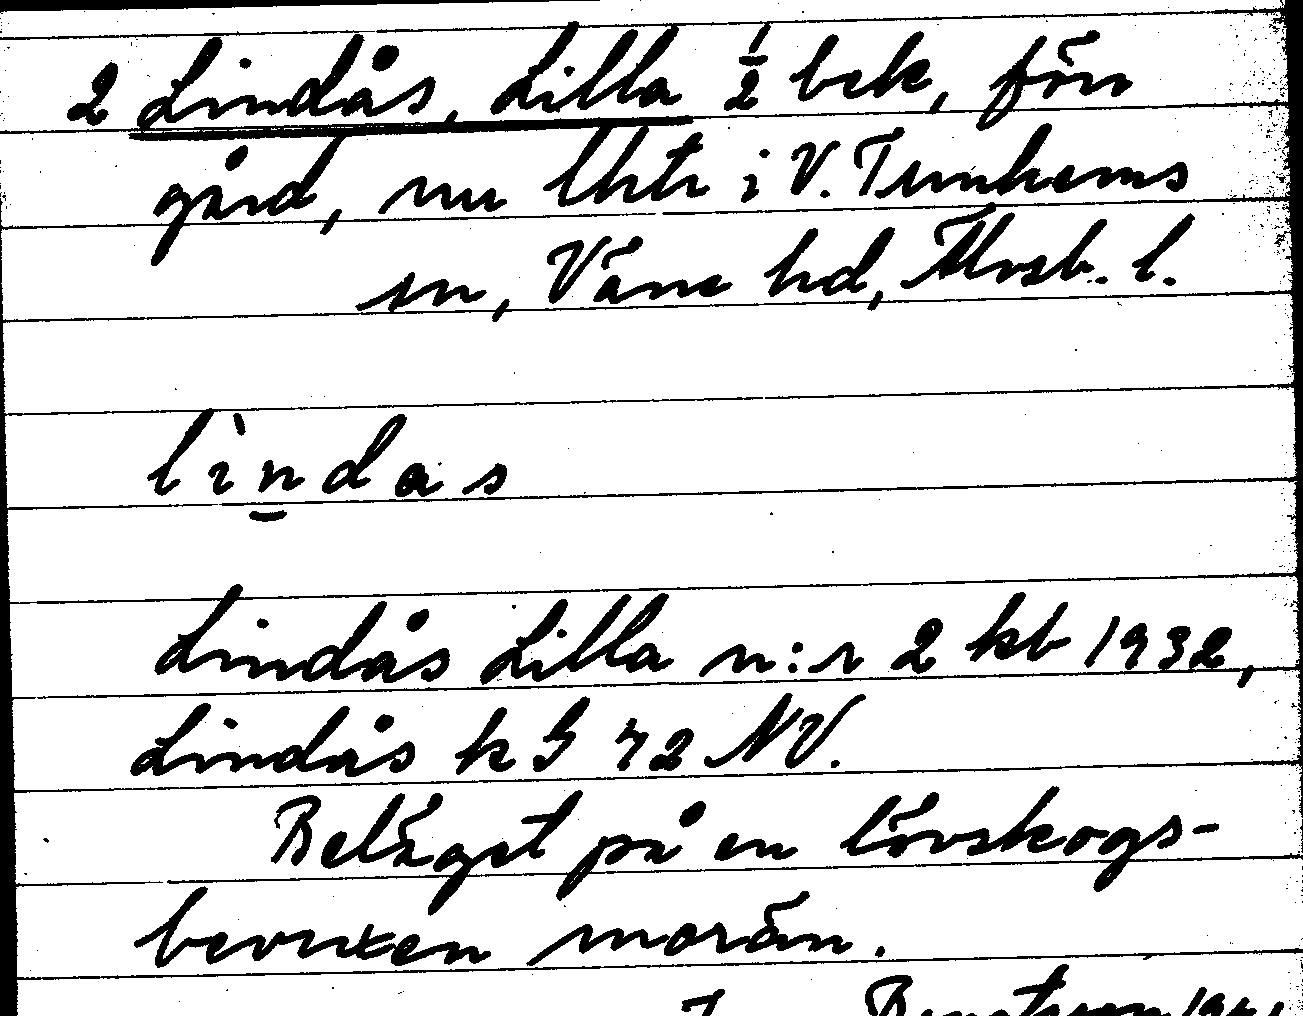 2 Lindås, Lilla 1/2 bek, förr
gård, nu lht i V. Tunhems
sn, Väne hd, Älvsb. l.
lìn̲das
Lindås Lilla n:r 2 kb 1932,
Lindås k G 72 NV.
Beläget på en lövskogs-
bevuxen morän.